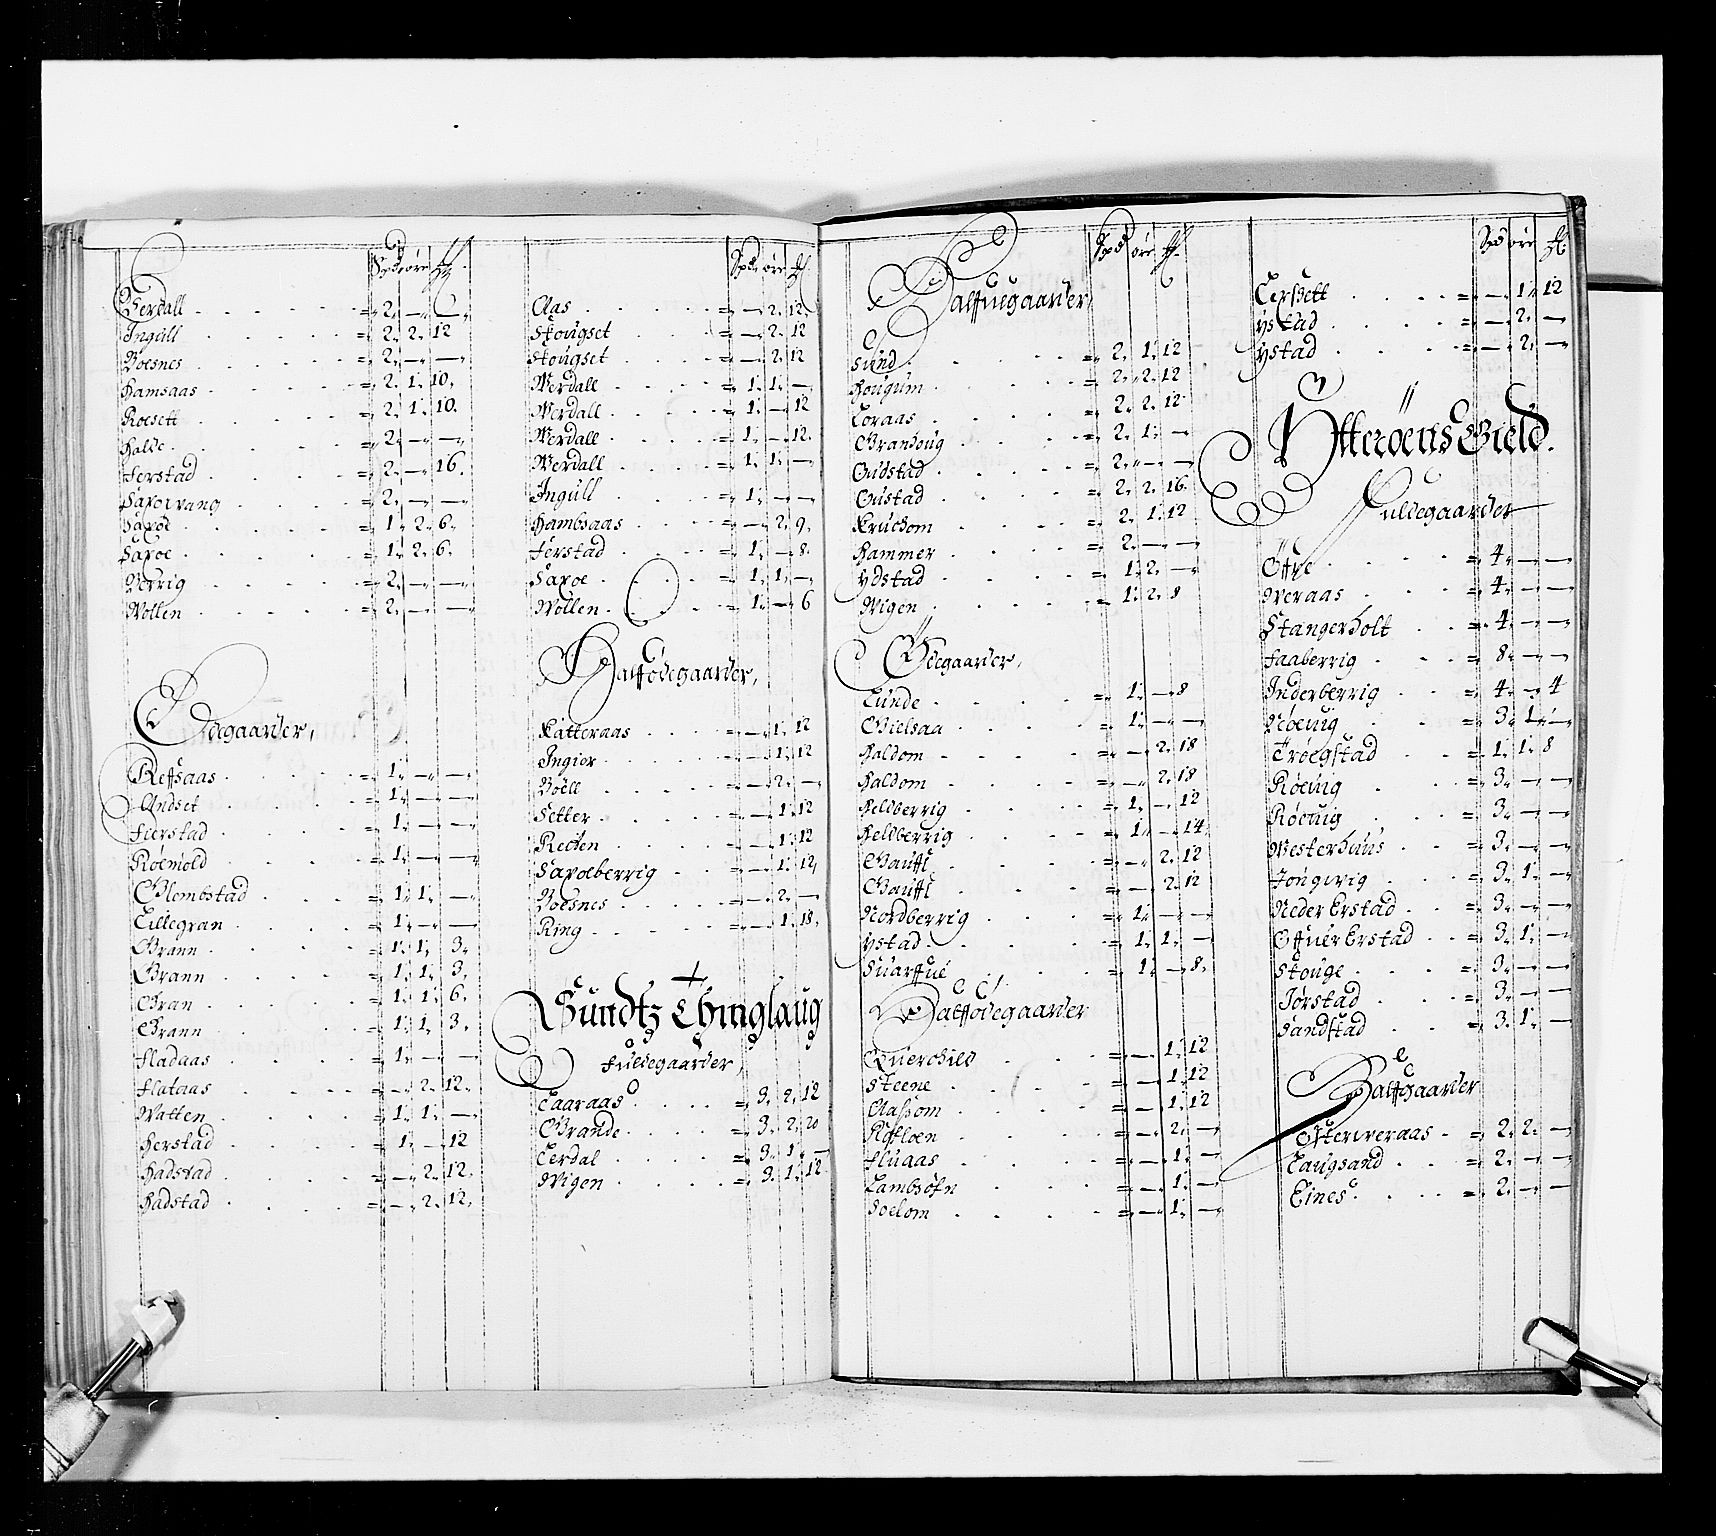 Spd ore
Werdall = 2. — —
Ingüll = 2. 2. 12
Voesnes = 2. — —
Hamsaas = 2. 1. 10.
Roesett = 2. 1. 10.
Halde = 2. — —
Ferstad = 2. — 16
Saxoevang = 2. — —
Saxoe = 1. 2. 6.
Saxoe = 1. 2. 6.
Verrig = 2. — —
Wollen = 2. — —
Ødegaarder,
Reffsaas = 1. — —
Andset = 1. — —
Fierstad = 1. — —
Röemold = 1. — —
Glembstad = 1. 1. —
Lillegran = 1. — —
Grann = 1. 1. 3.
Grann = 1. 1. 3.
Gran = 1. 1. 6.
Grann = 1. 1. 3.
Fladaas = 1. — —
Flataas = — 2. 12.
Watten = 1. 1. —
Herstad = 1. — 12
Hadstad = — 2. 12.
Hadstad = — 2. 12.
Spd. ore
Aas = — 2. 12.
Skougset = — 2. 12
Skougset = — 2. 12
Werdall = 1. 1. —
Werdall = 1. — 12
Werdall = 1. — 12.
Werdall = 1. 1. —
Ingüll = 1. — —
Hambsaas = — 2. 9.
Ferstad = 1. — 8.
Saxoe = 1. 1. —
Wollen = 1. — 6
Halffödegaarder,
Katteraas = — 1. 12
Ingier = — 1. 12
Böell = — 2. —
Setter = — 1. 12
Recten = — 1. 12
Saxoeberrig = — 1. 12
Voesnes = — 2. —
Ring = — 1. 18.
Sundtz Thinglaug
Fuldegaarder,
Laaraas = 3. 2. 12
Grande = 3. 2. 20
Lerdal = 3. 1. —
Wigen = 3. 1. 12
Spd ore
Halffuegaarder,
Sund = 2. 1. 12
Hougum = 2. 2. 12
Loraas = 2. 2. 12
Grandoug = 2. 1. —
Gudstad = 2. — —
Gustad = 2. 2. 16.
Kruchom = 2. 1. 12
Hammer = 2. — —
Ydstad = 1. 2. —
Wigen = 1. 2. 8
Ödegaarder,
Lunde = 1. — 8
Gielsaa = 1. — —
Haldom = — 2. 18
Haldom = — 2. 18
Heldberrig = 1. — 12
Heldberrig = 1. — 14.
Gauffl = — 2. 12
Gauffl = — 2. 12
Nordberrig = 1. — —
Ystad = 1. 1. —
Suarffue = 1. — 8.
Halffödegaarder
Quierchild = — 1. 12
Steene = — 1. 12
Aassom = — 1. 12
Rofloen = — 2. —
Fluaas = — 1. —
Lambsöfn = — 1. —
Soelom = — 1. —
Spd ore
Lerssett = — 1. 12
Ystad = — 2. —
Ystad = — 2. —
Ytterøens Gield.
Fuldegaarder
Öffre = 4. — —
Weraas = 4. — —
Stangerholt = 4. — —
Faaberrig = 8. — —
Inderberrig = 4. — 4
Nöeuig = 3. 1. —
Tröegstad = 1. 1. 8
Röeuig = 3. — —
Röeuig = 3. — —
Westerhuus = 3. — —
Jongwig = 3. 1. —
Neder Erstad = 3. — —
Offuer Erstad = 3. 1. —
Skouge = 3. — —
Jørstad = 3. — —
Sandstad = 3. 1. —
Halffgaarder
Østerweraas = 2. 2. —
Laugsand = 2. — —
Eines = 2. — —